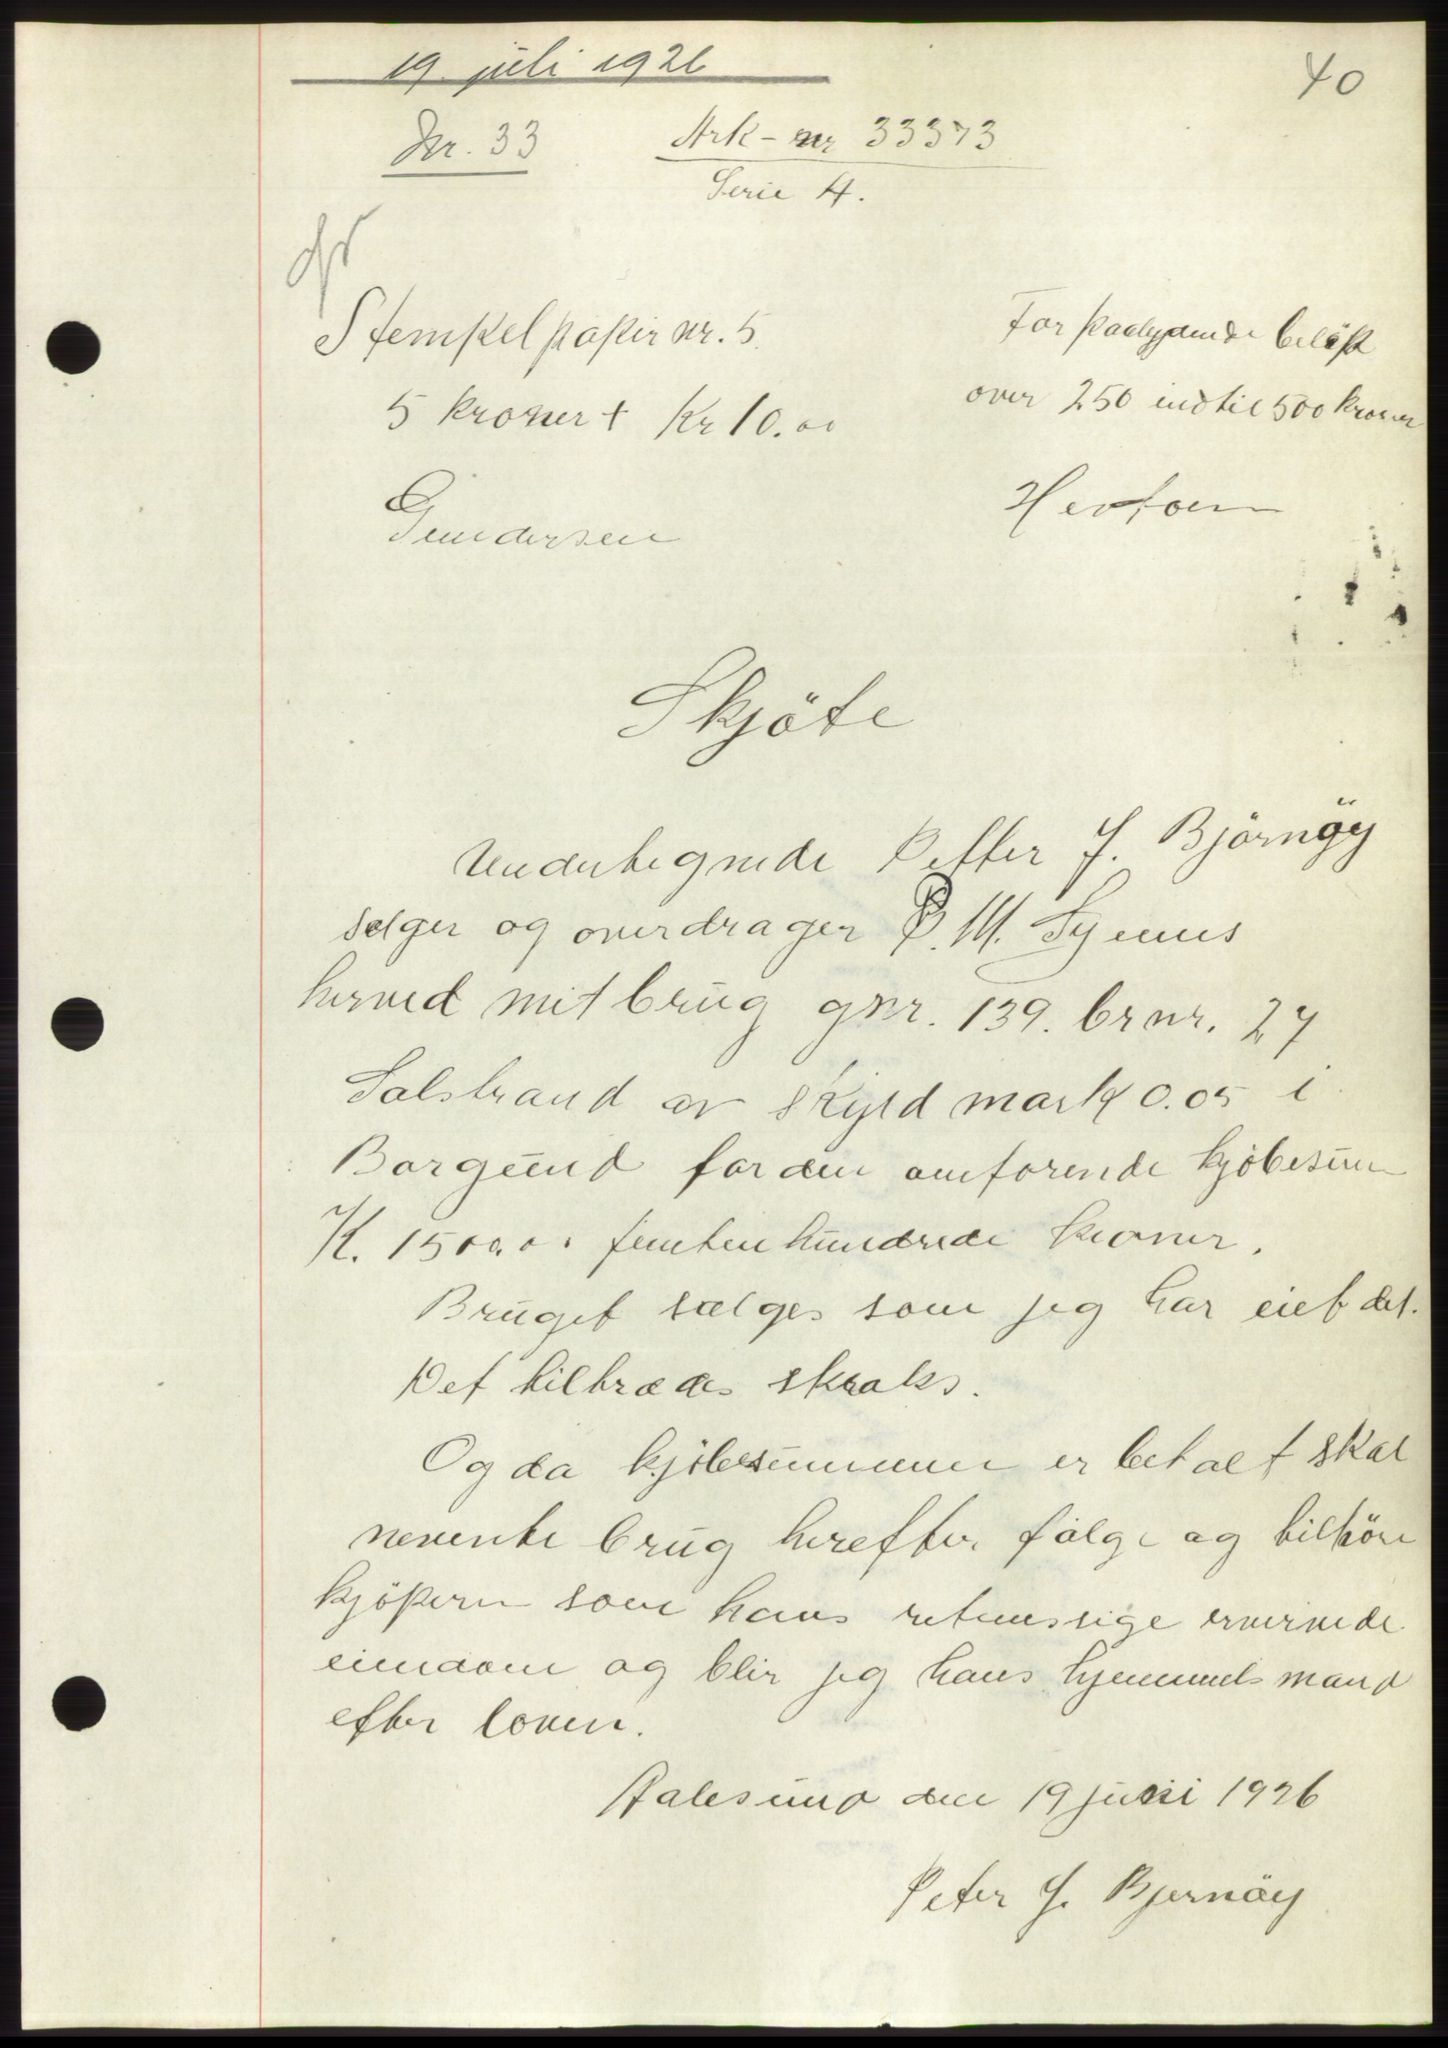 19. juli 1926
40
Nr. 33
Ark-nr 33373
Serie H.
Stempelpapir nr. 5.
For paalydende beløp
5 kroner + Kr 10.00
over 250 indtil 500 kroner
Gundersen
Skjöte
Undertegnede Petter J. Björnöy
selger og overdrager P. M. Synnes
herved mit brug gnr. 139. br nr. 27
Salstrand av skyld mark 0.05 i
Borgund for den omforende kjöbesum
K. 1500.00 femtenhundrede kroner.
Bruget sælges som jeg har eiet det.
Det tiltrædes straks.
Og da kjöbesummen er betalt skal
nevente brug herefter fölge og tilhöre
kjöperen som hans retmessige erververde
eiendom og blir jeg hans hjemmels mand
efter loven.
Aalesund den 19 juni 1926
Peter J. Bjernöy